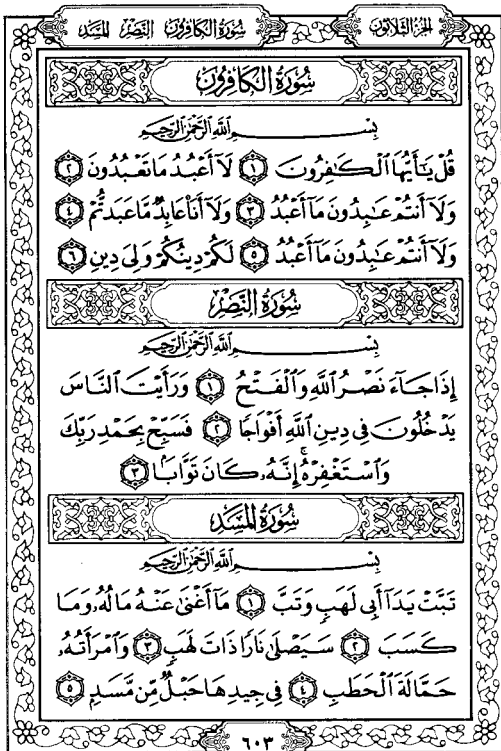 سُورَةُ الكَافِرُونَ النَّصْرِ المَسَدِ الجُزْءُ الثَّلَاثُونَ
سُورَةُ الكَافِرُونَ
بِسْمِ اللَّهِ الرَّحْمَٰنِ الرَّحِيمِ
قُلْ يَٰٓأَيُّهَا ٱلْكَٰفِرُونَ ١ لَآ أَعْبُدُ مَا تَعْبُدُونَ ٢
وَلَآ أَنتُمْ عَٰبِدُونَ مَآ أَعْبُدُ ٣ وَلَآ أَنَا۠ عَابِدٌ مَّا عَبَدتُّمْ ٤
وَلَآ أَنتُمْ عَٰبِدُونَ مَآ أَعْبُدُ ٥ لَكُمْ دِينُكُمْ وَلِىَ دِينِ ٦
سُورَةُ النَّصْرِ
بِسْمِ اللَّهِ الرَّحْمَٰنِ الرَّحِيمِ
إِذَا جَآءَ نَصْرُ ٱللَّهِ وَٱلْفَتْحُ ١ وَرَأَيْتَ ٱلنَّاسَ
يَدْخُلُونَ فِى دِينِ ٱللَّهِ أَفْوَاجًا ٢ فَسَبِّحْ بِحَمْدِ رَبِّكَ
وَٱسْتَغْفِرْهُ ۚ إِنَّهُۥ كَانَ تَوَّابًۢا ٣
سُورَةُ المَسَدِ
بِسْمِ اللَّهِ الرَّحْمَٰنِ الرَّحِيمِ
تَبَّتْ يَدَآ أَبِى لَهَبٍ وَتَبَّ ١ مَآ أَغْنَىٰ عَنْهُ مَالُهُۥ وَمَا
كَسَبَ ٢ سَيَصْلَىٰ نَارًا ذَاتَ لَهَبٍ ٣ وَٱمْرَأَتُهُۥ
حَمَّالَةَ ٱلْحَطَبِ ٤ فِى جِيدِهَا حَبْلٌ مِّن مَّسَدٍۭ ٥
٦٠٣